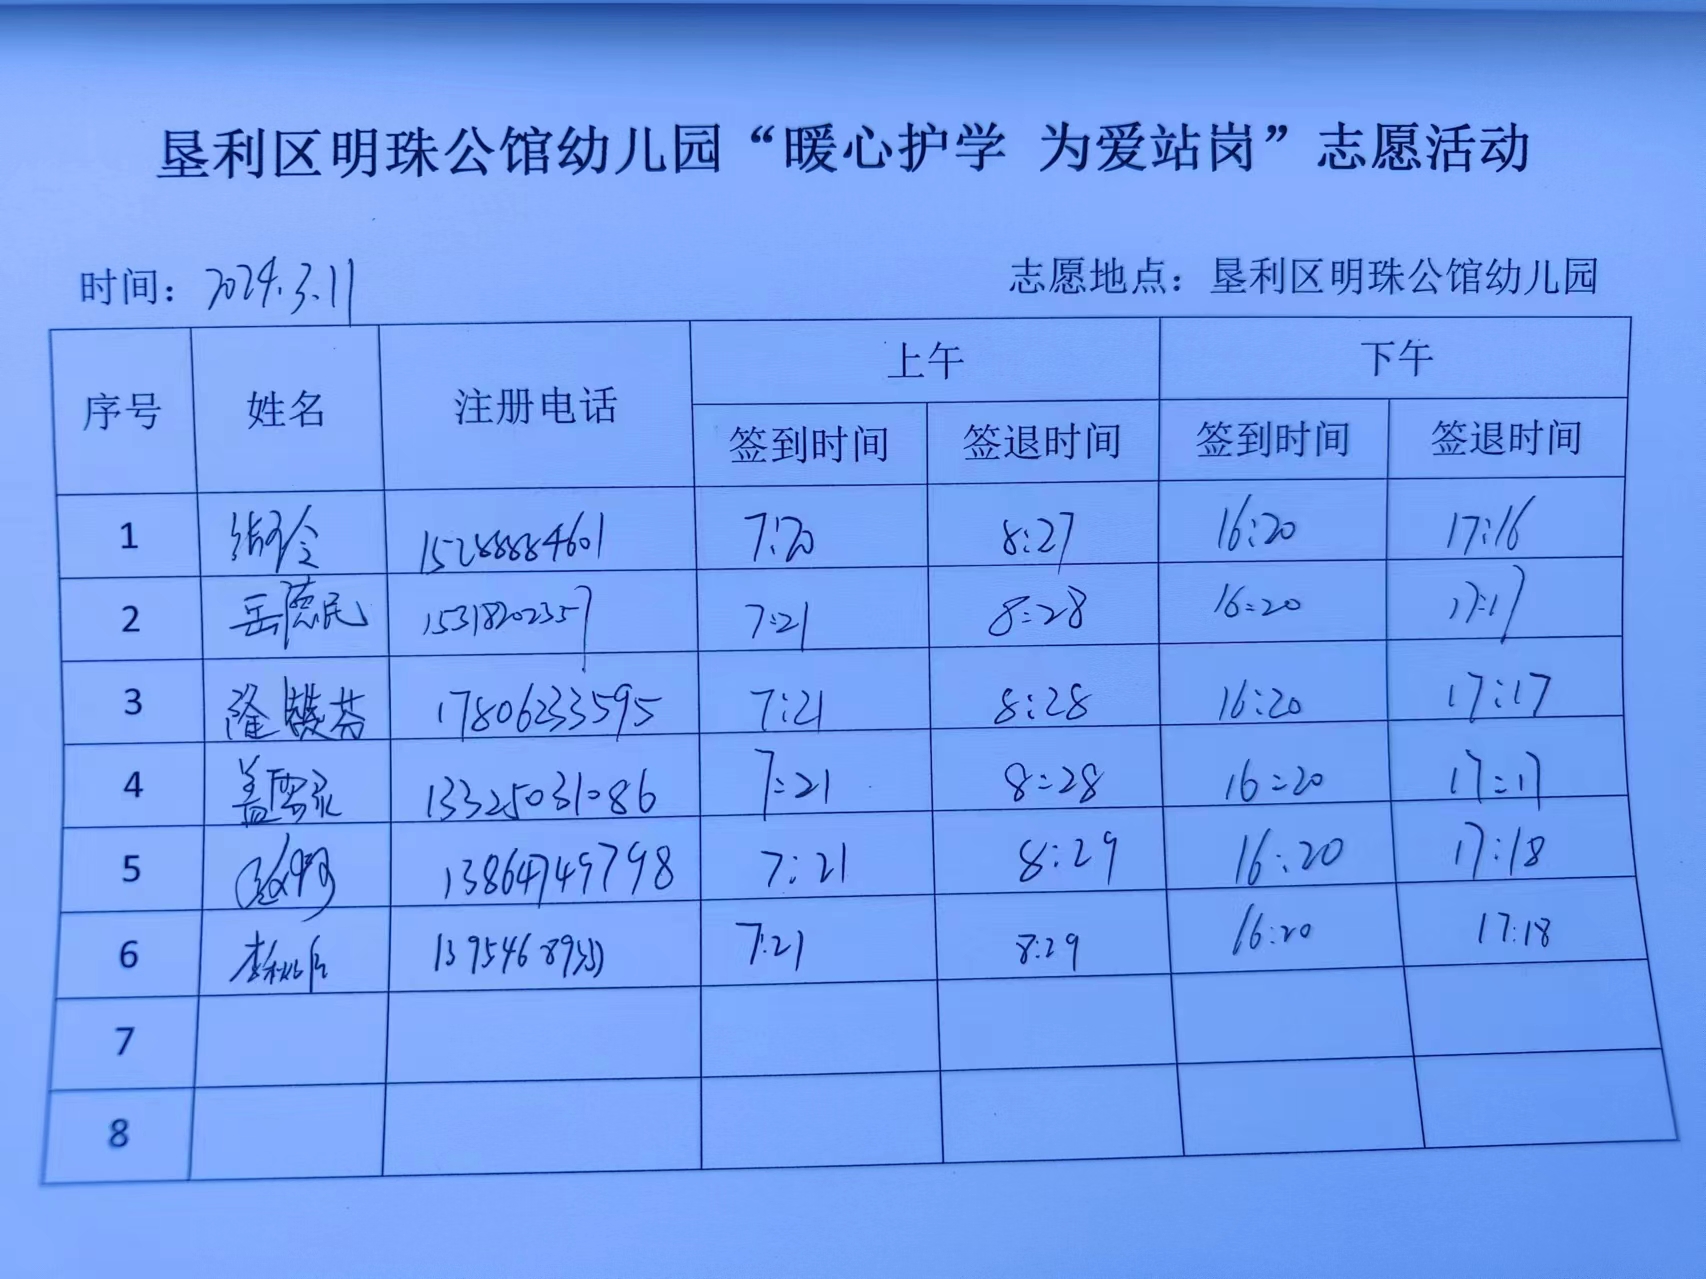 垦利区明珠公馆幼儿园“暖心护学 为爱站岗”志愿活动
时间：2024.3.11 志愿地点：垦利区明珠公馆幼儿园
序号 姓名 注册电话 上午 下午
签到时间 签退时间 签到时间 签退时间
1 15288884601 7:20 8:27 16:20 17:16
2 岳德民 15318202357 7:21 8:28 16:20 17:17
3 隆 芬 17806233595 7:21 8:28 16:20 17:17
4 盖 13325031086 7:21 8:28 16:20 17:17
5 赵 13864749798 7:21 8:29 16:20 17:18
6 李秋 7:21 8:29 16:20 17:18
7
8